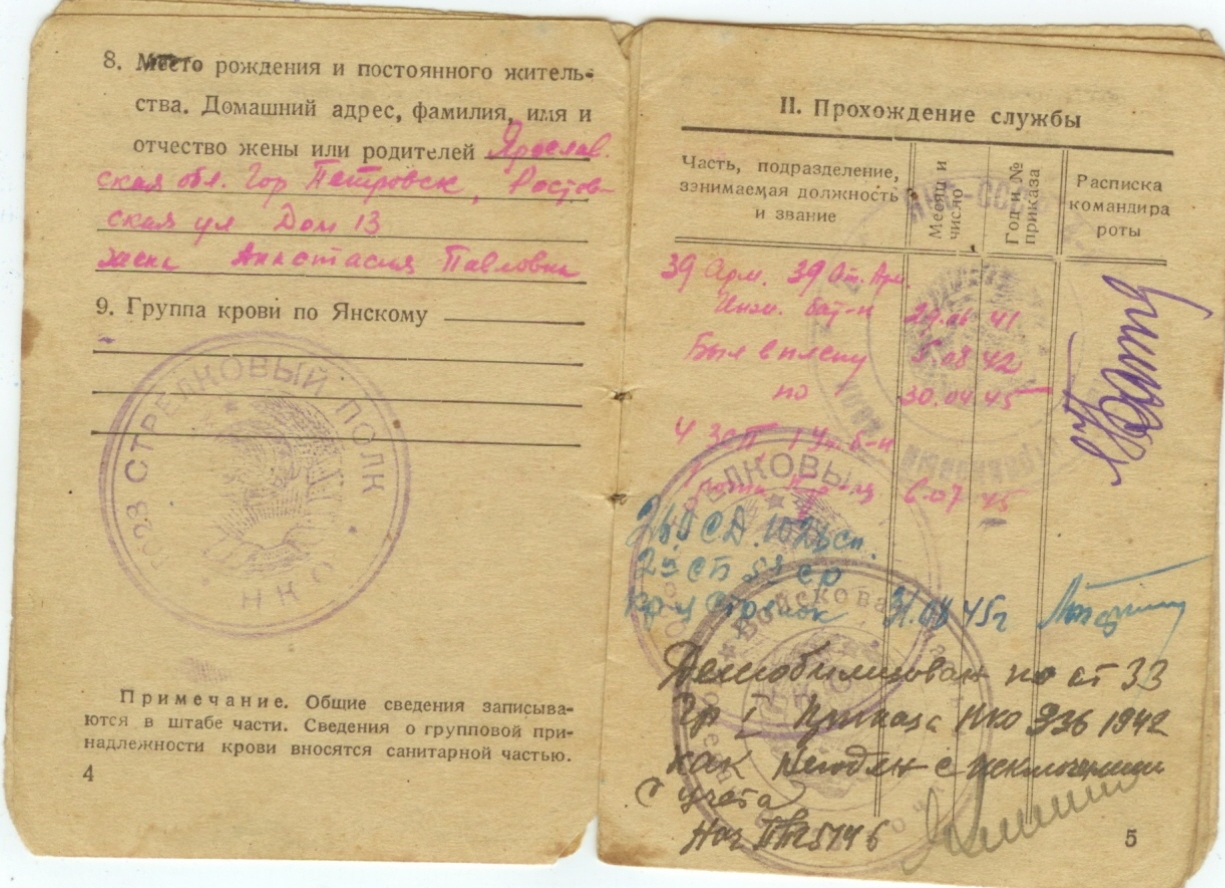 8. Место рождения и постоянного житель-
ства. Домашний адрес, фамилия, имя и
отчество жены или родителей Ярослав.
ская обл. Гор Петровск, Ростов-
ская ул Дом 13
жена Анастасия Павловна
9. Группа крови по Янскому
1023 СТРЕЛКОВЫЙ ПОЛК
НКО
Примечание. Общие сведения записыва-
ются в штабе части. Сведения о групповой при-
надлежности крови вносятся санитарной частью.
4
II. Прохождение службы
Часть, подразделение,
занимаемая должность
и звание
Месяц и
число
Год и №
приказа
Расписка
командира
роты
39 Арм. 39 От. Арм.
Инж. бат-н 41
Был в плену 5.08 42
по 30.04 45
4 ЗСП 1 Уч. б-н
6.07 45
260 СД. 1028 сп.
29 СБ
Стрелок 31.08 45г
Демобилизован по ст 33
гр I Приказа НКО 336 1942
как негоден с исключением
с учета
Нач
5